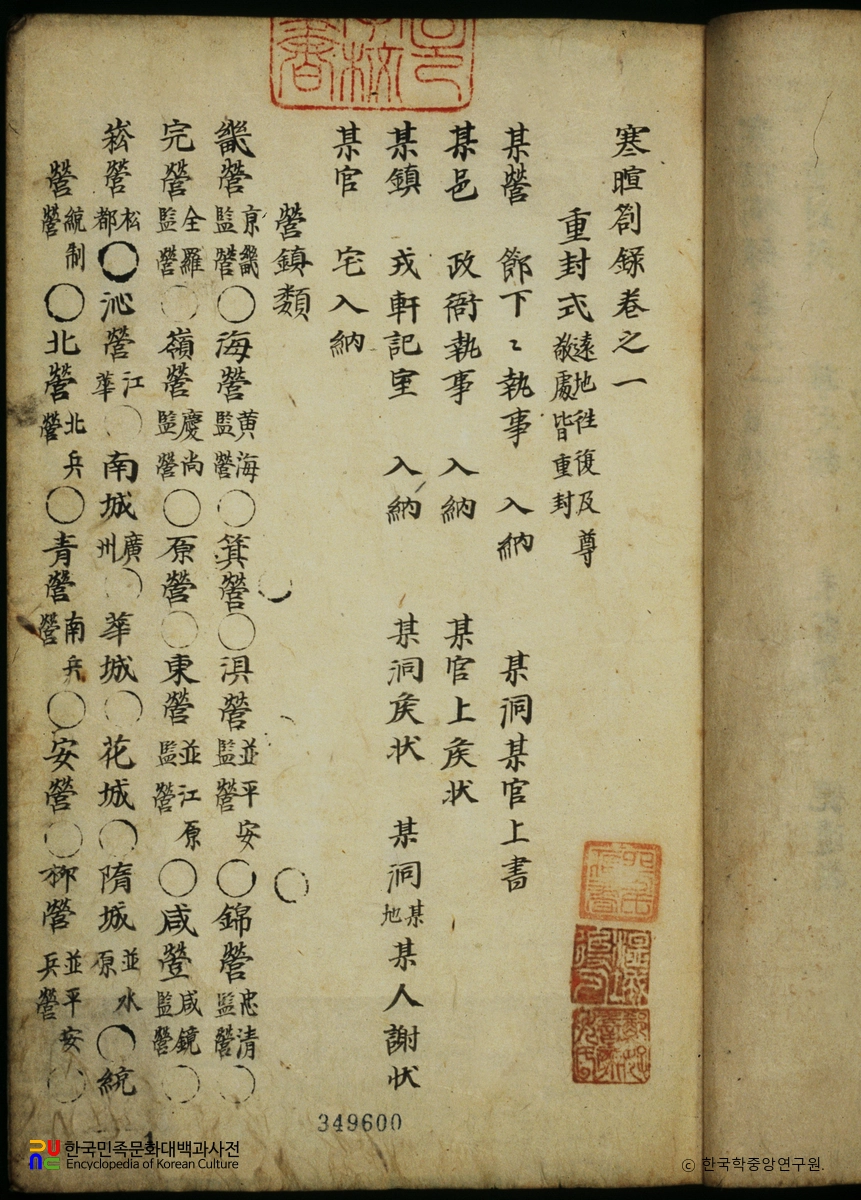 寒暄劄錄卷之一
重封式 遠地徃復及尊敬處皆重封
某營 節下〻執事 入納 某洞某官上書
某邑 政衙執事 入納 某官上矦狀
某鎭 戎軒記室 入納 某洞矦狀 某洞某地某人謝狀
某官 宅入納
營鎭類
畿營京畿監營○海營黃海監營○箕營○浿營並平安監營○錦營忠清監營○
完營全羅監營○嶺營慶尙監營○原營○東營並江原監營○咸營咸鏡監營○
崧營松都○沁營江華○南城廣州○華城○花城○隋城並水原○統
營統制營○北營北兵營○青營南兵營○安營○柳營並平安兵營○
349600
1
한국민족문화대백과사전
Encyclopedia of Korean Culture
ⓒ 한국학중앙연구원.